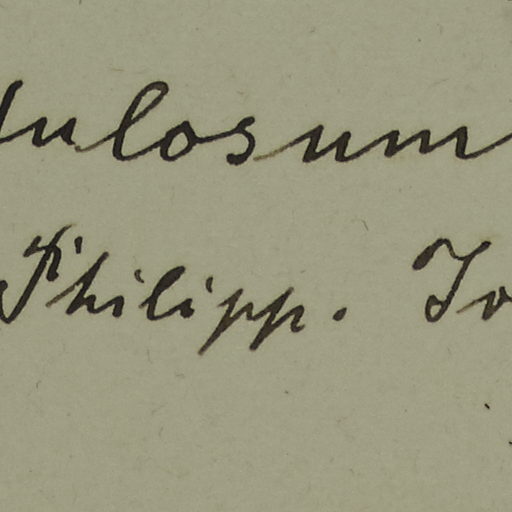 ulosum
Philipp. Io